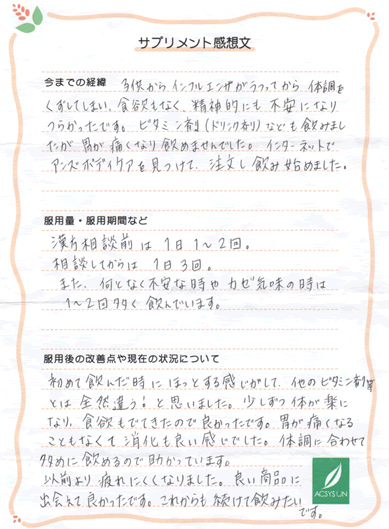 サプリメント感想文
今までの経緯 子供からインフルエンザがうつってから 体調を
くずしてしまい、食欲もなく、精神的にも不安になり
つらかったです。ビタミン剤(ドリンク剤)なども飲みまし
たが胃が痛くなり飲めませんでした。インターネットで
アンズボディケアを見つけて、注文し飲み始めました。
服用量・服用期間など
漢方相談前は1日1〜2回。
相談してからは1日3回。
また、何となく不安な時やカゼ気味の時は
1〜2回多く飲んでいます。
服用後の改善点や現在の状況について
初めて飲んだ時にほっとする感じがして、他のビタミン剤等
とは全然違う!と思いました。少しずつ体が楽に
なり、食欲もでてきたので良かったです。胃が痛くなる
こともなくて消化も良い感じでした。体調に合わせて
多めに飲めるので助かっています。
以前より疲れにくくなりました。良い商品に
出会えて良かったです。これからも続けて飲みたい
です。
ACSYS UN